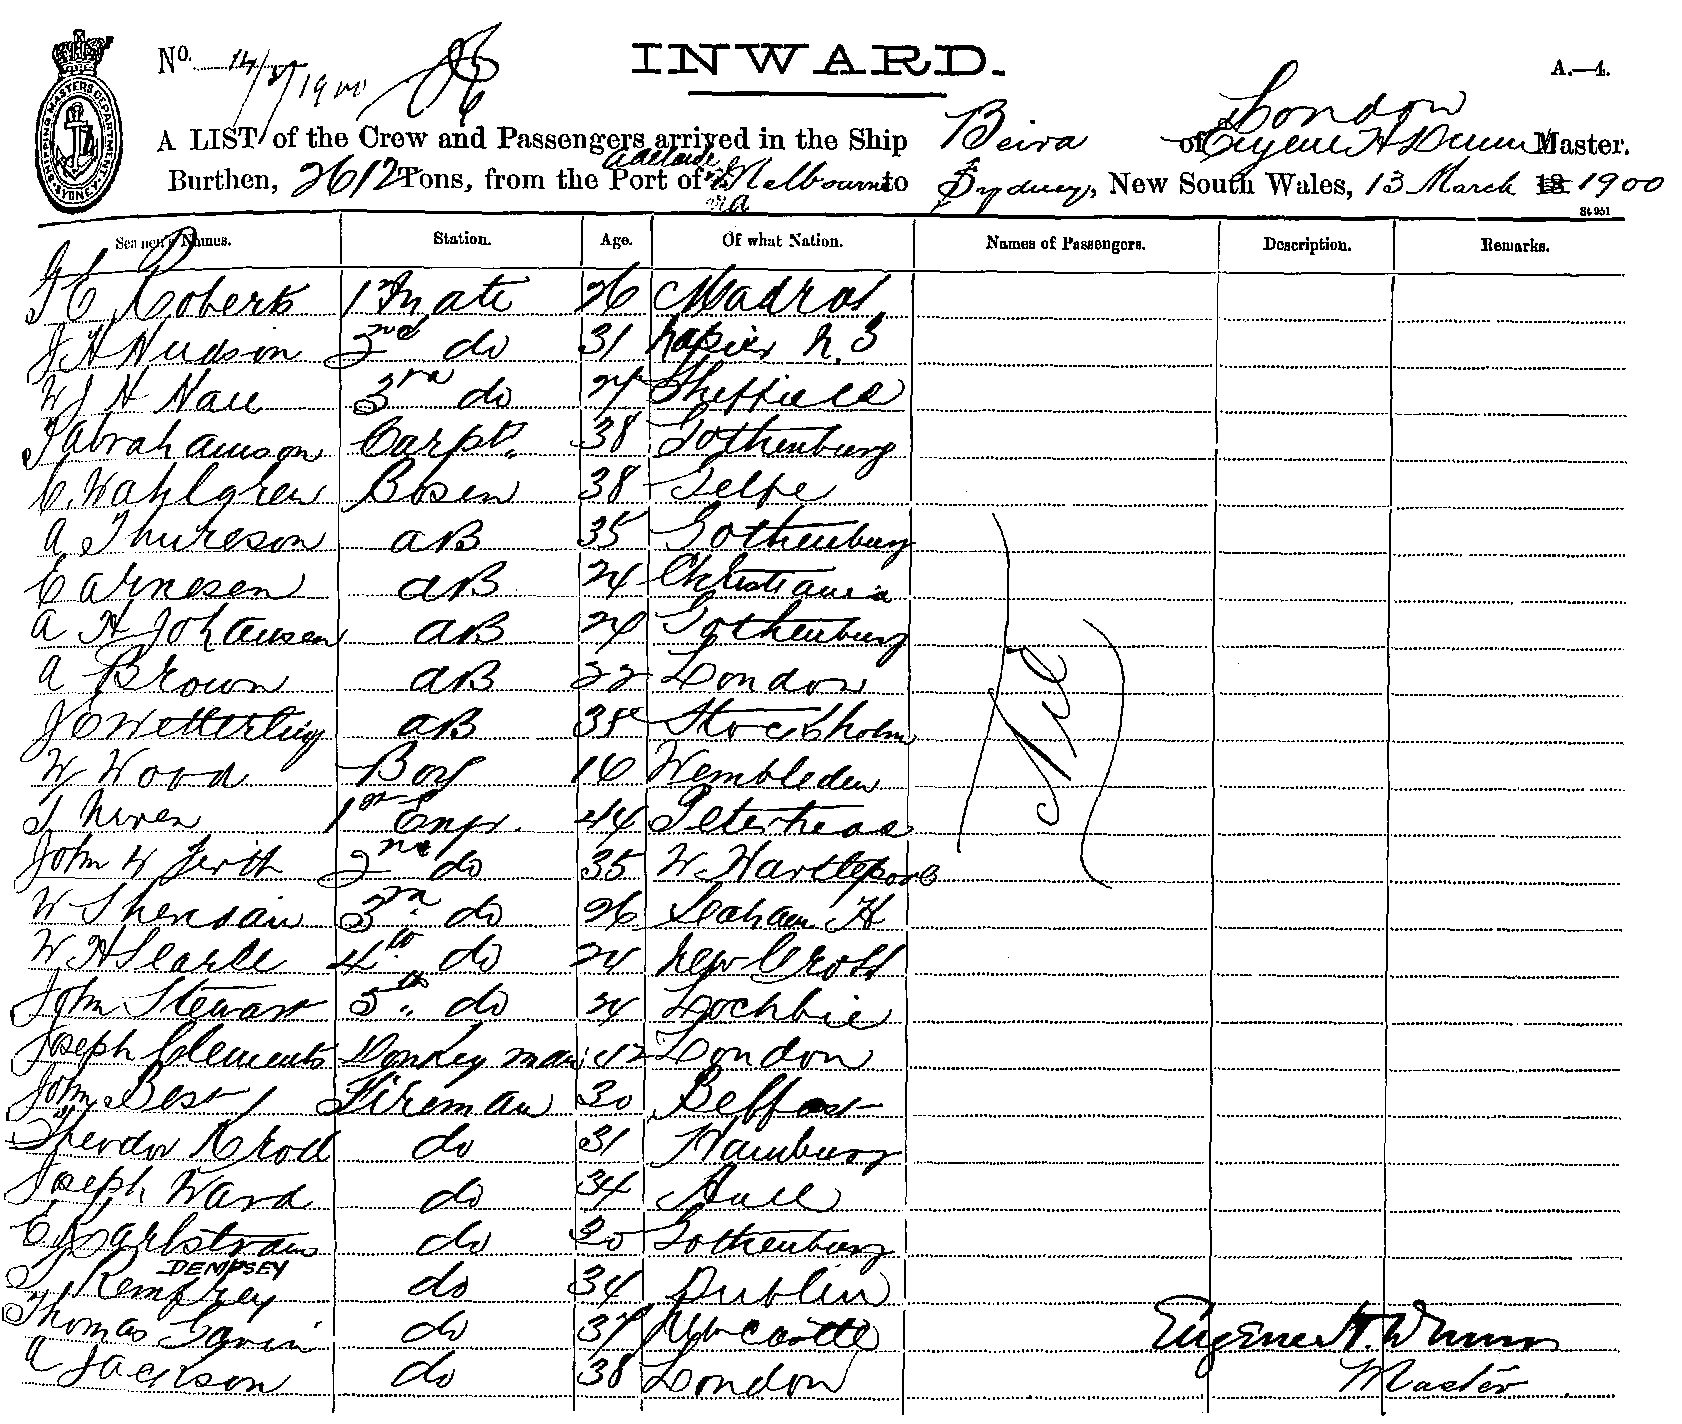 No. 14/3/1900
INWARD.
A.—4.
London
A LIST of the Crew and Passengers arrived in the Ship Beira of Eugene H Dunn Master.
Adelaide
Burthen, 2612 Tons, from the Port of Melbourne to Sydney, New South Wales, 13 March 18 1900
St 951
Seamen's Names. Station. Age. Of what Nation. Names of Passengers. Description. Remarks.
Roberts 1st Mate 26 Madras
J H Hudson 2nd do 31 Napier N. Z
W J H Hall 3rd do 24 Sheffield
J Abrahamson Carptr. 38 Gothenburg
C. Wahlgren Bosen 38 Telfe
A Thureson AB 35 Gothenburg
E Arnesen AB 24 Christiania
A H Johansen AB 24 Gothenburg
A Brown AB 22 London
J C Wetterling AB 35 Stockholm
W Wood Boy 16 Wembleden
J Niven 1st Engr. 44 Peterhead
John W Firth 2nd do 35 W. Hartlepool
W Sheridan 3rd do 26 Seaham H
W. H Searle 4th do 24 New Cross
John Stewart 5th do 24 Lochbie
Joseph Clements Donkey man 42 London
John Best Fireman 30 Belfast
Theodor Krod do 31 Hamburg
Joseph Ward do 34 Hull
C J Carlstrom do 30 Gothenburg
DEMPSEY
Kemprey do 34 Dublin
Thomas Gavin do 37 Newcastle
A Jackson do 38 London
Nil
Eugene H. Dunn
Master